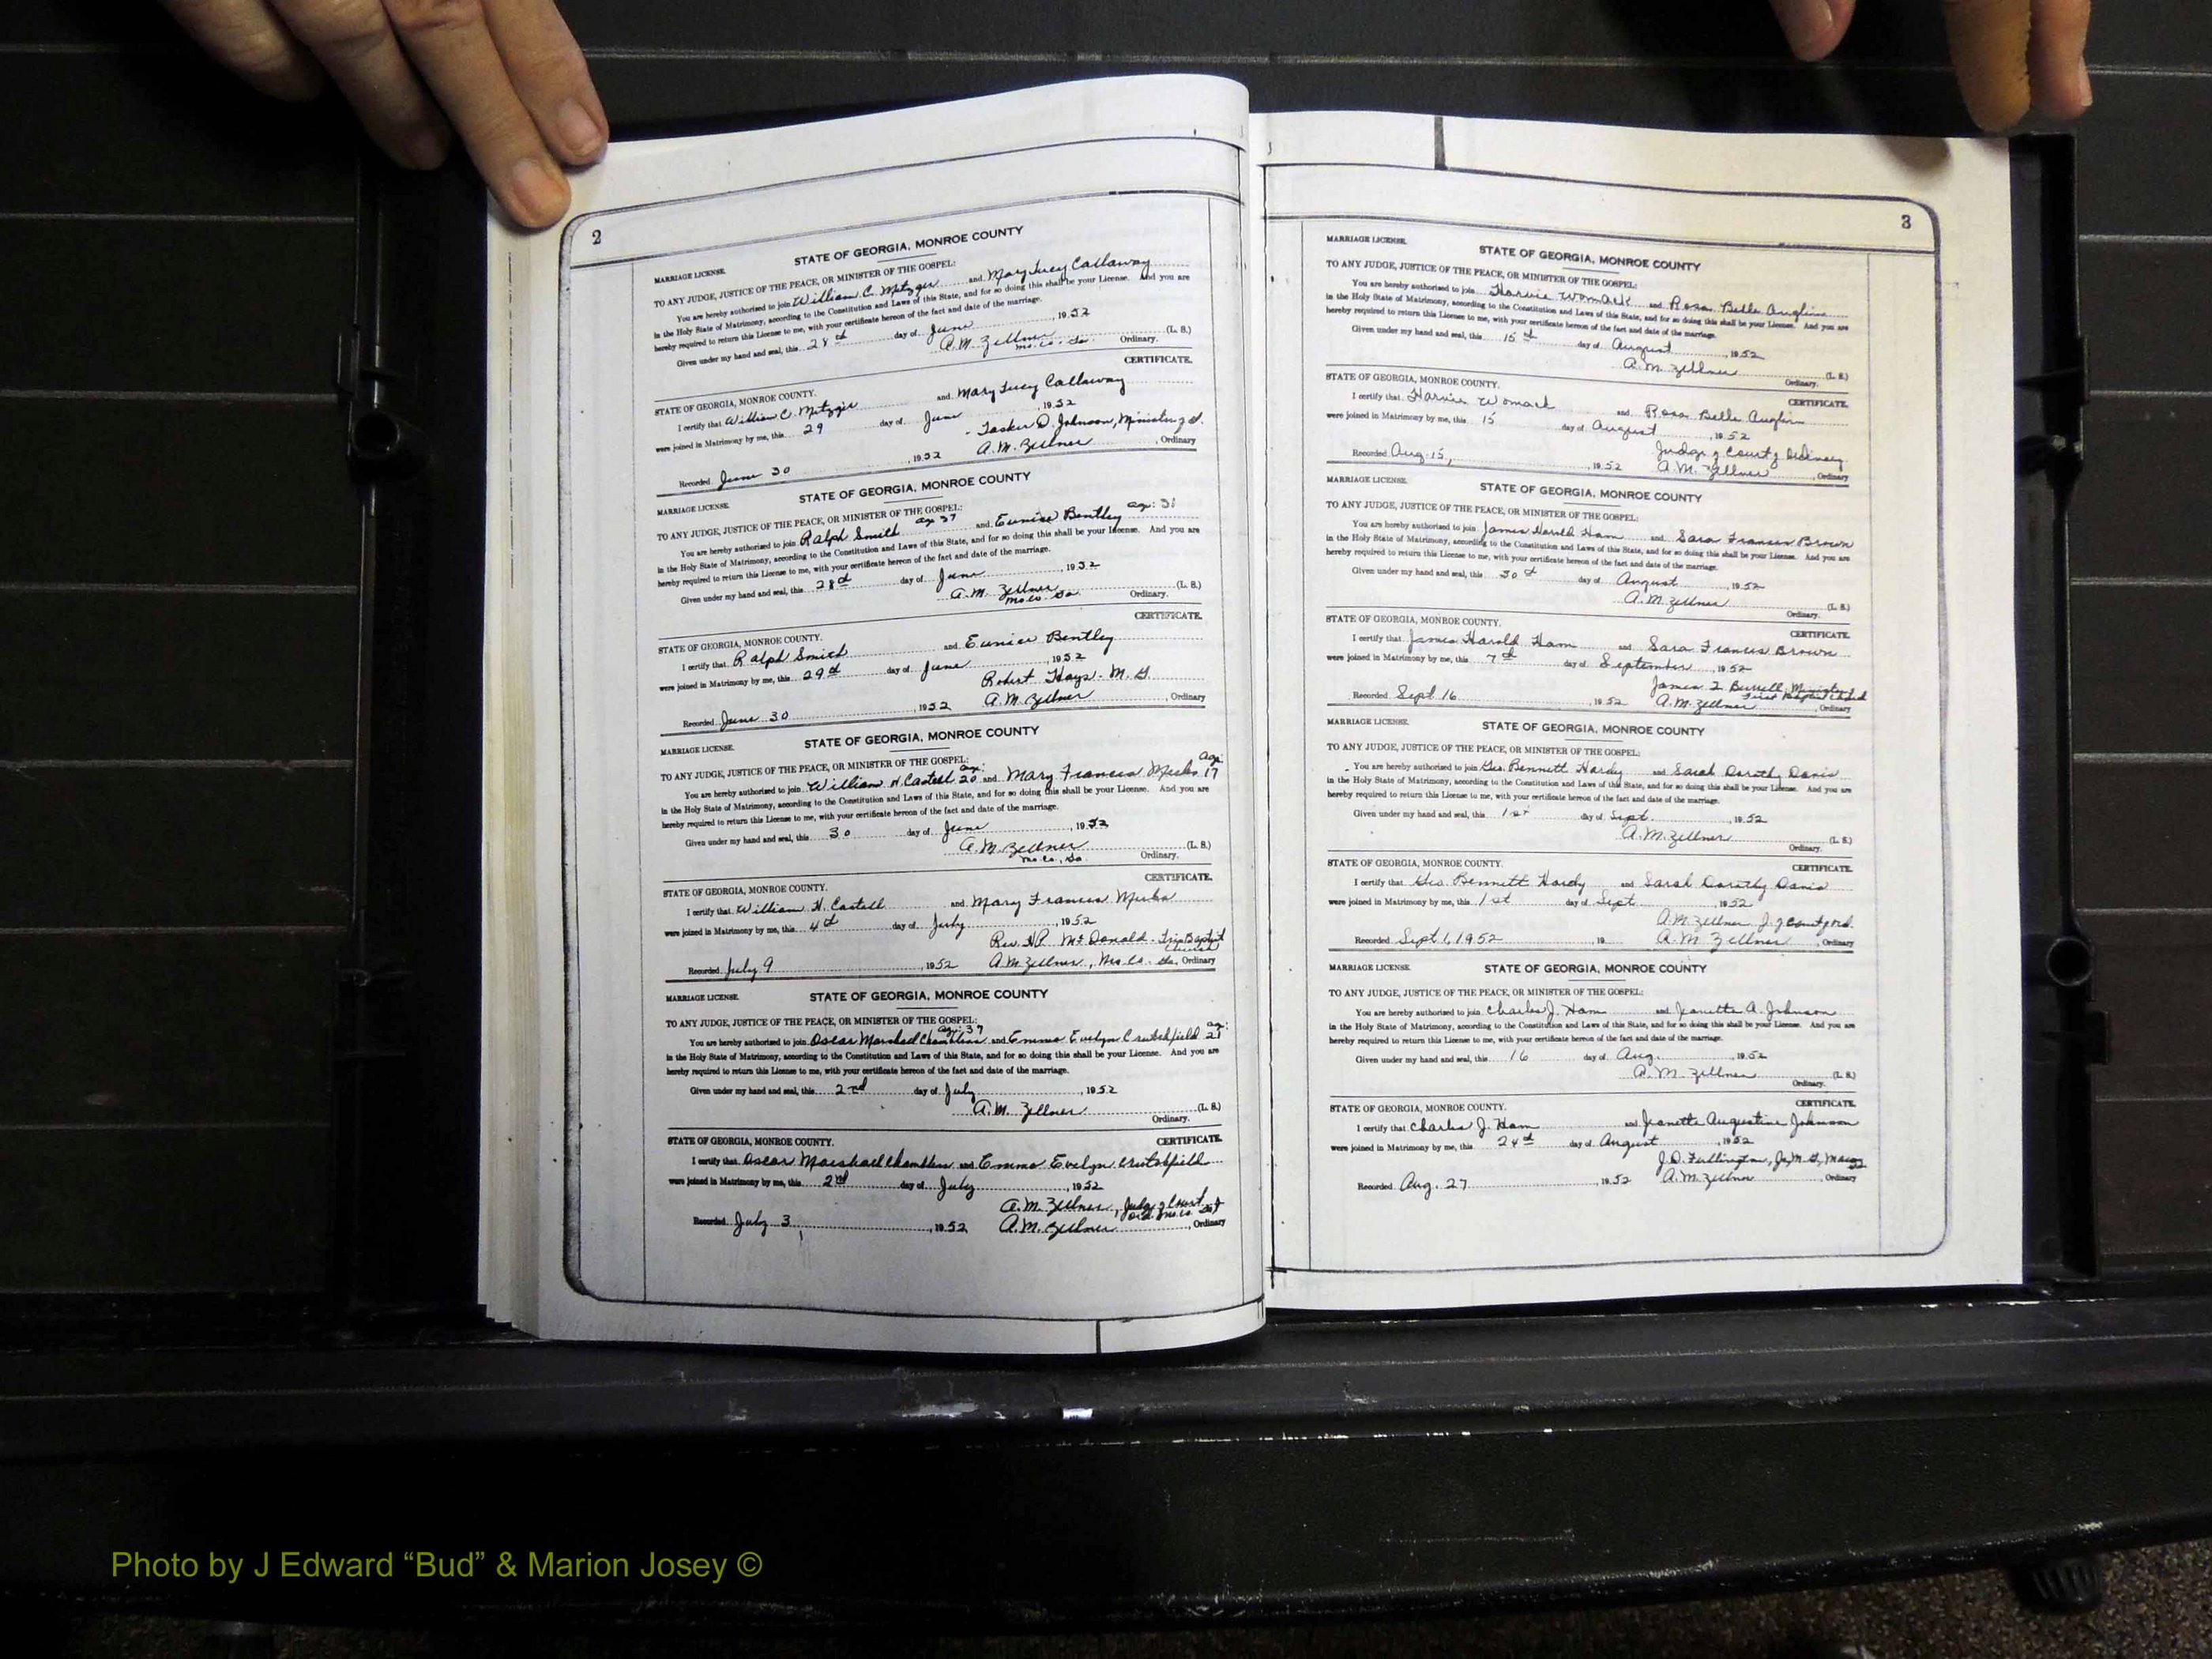 2
STATE OF GEORGIA, MONROE COUNTY
MARRIAGE LICENSE.
TO ANY JUDGE, JUSTICE OF THE PEACE, OR MINISTER OF THE GOSPEL:
You are hereby authorized to join William C. Metzger and Mary Lucy Callaway
in the Holy State of Matrimony, according to the Constitution and Laws of this State, and for so doing this shall be your License. And you are
hereby required to return this License to me, with your certificate hereon of the fact and date of the marriage.
Given under my hand and seal, this 28th day of June, 1952
A.M. Zellner (L. S.)
Mo. Co. Ga. Ordinary.
CERTIFICATE.
STATE OF GEORGIA, MONROE COUNTY.
I certify that William C. Metzger and Mary Lucy Callaway
were joined in Matrimony by me, this 29 day of June, 1952
Tasker D. Johnson, Minister
Recorded June 30, 1952 A.M. Zellner, Ordinary
STATE OF GEORGIA, MONROE COUNTY
MARRIAGE LICENSE.
TO ANY JUDGE, JUSTICE OF THE PEACE, OR MINISTER OF THE GOSPEL:
You are hereby authorized to join Ralph Smith age 37 and Eunice Bentley age:
in the Holy State of Matrimony, according to the Constitution and Laws of this State, and for so doing this shall be your License. And you are
hereby required to return this License to me, with your certificate hereon of the fact and date of the marriage.
Given under my hand and seal, this 28th day of June, 1952
A.M. Zellner (L. S.)
Mo. Co. Ga. Ordinary.
CERTIFICATE.
STATE OF GEORGIA, MONROE COUNTY.
I certify that Ralph Smith and Eunice Bentley
were joined in Matrimony by me, this 29th day of June, 1952
Robert Hays - M. G.
Recorded June 30, 1952 A.M. Zellner, Ordinary
MARRIAGE LICENSE. STATE OF GEORGIA, MONROE COUNTY
TO ANY JUDGE, JUSTICE OF THE PEACE, OR MINISTER OF THE GOSPEL:
You are hereby authorized to join William H. Castell age: 20 and Mary Francis age: 17
in the Holy State of Matrimony, according to the Constitution and Laws of this State, and for so doing this shall be your License. And you are
hereby required to return this License to me, with your certificate hereon of the fact and date of the marriage.
Given under my hand and seal, this 30 day of June, 1952
A.M. Zellner (L. S.)
Mo. Co., Ga. Ordinary.
CERTIFICATE.
STATE OF GEORGIA, MONROE COUNTY.
I certify that William H. Castell and Mary Francis
were joined in Matrimony by me, this 4th day of July, 1952
Rev. McDonald - Baptist
Recorded July 9, 1952 A.M. Zellner, Mo. Co. Ga. Ordinary
MARRIAGE LICENSE. STATE OF GEORGIA, MONROE COUNTY
TO ANY JUDGE, JUSTICE OF THE PEACE, OR MINISTER OF THE GOSPEL:
You are hereby authorized to join Oscar Marshall Chambliss age: 37 and Emma Evelyn Crutchfield age: 21
in the Holy State of Matrimony, according to the Constitution and Laws of this State, and for so doing this shall be your License. And you are
hereby required to return this License to me, with your certificate hereon of the fact and date of the marriage.
Given under my hand and seal, this 2nd day of July, 1952
A.M. Zellner (L. S.)
Ordinary.
STATE OF GEORGIA, MONROE COUNTY. CERTIFICATE.
I certify that Oscar Marshall Chambliss and Emma Evelyn Crutchfield
were joined in Matrimony by me, this 2nd day of July, 1952
A.M. Zellner, Judge of Court
Ord. Mo. Co. Ga
Recorded July 3, 1952 A.M. Zellner, Ordinary
3
MARRIAGE LICENSE. STATE OF GEORGIA, MONROE COUNTY
TO ANY JUDGE, JUSTICE OF THE PEACE, OR MINISTER OF THE GOSPEL:
You are hereby authorized to join Harvie Womack and Rosa Belle Anglin
in the Holy State of Matrimony, according to the Constitution and Laws of this State, and for so doing this shall be your License. And you are
hereby required to return this License to me, with your certificate hereon of the fact and date of the marriage.
Given under my hand and seal, this 15th day of August, 1952
A.M. Zellner (L. S.)
Ordinary.
STATE OF GEORGIA, MONROE COUNTY. CERTIFICATE.
I certify that Harvie Womack and Rosa Belle Anglin
were joined in Matrimony by me, this 15 day of August, 1952
Judge of Court of Ordinary
Recorded Aug. 15, 1952 A.M. Zellner, Ordinary
MARRIAGE LICENSE. STATE OF GEORGIA, MONROE COUNTY
TO ANY JUDGE, JUSTICE OF THE PEACE, OR MINISTER OF THE GOSPEL:
You are hereby authorized to join James Harold Ham and Sara Frances Brown
in the Holy State of Matrimony, according to the Constitution and Laws of this State, and for so doing this shall be your License. And you are
hereby required to return this License to me, with your certificate hereon of the fact and date of the marriage.
Given under my hand and seal, this 30th day of August, 1952
A.M. Zellner (L. S.)
Ordinary.
STATE OF GEORGIA, MONROE COUNTY. CERTIFICATE.
I certify that James Harold Ham and Sara Frances Brown
were joined in Matrimony by me, this 7th day of September, 1952
James Burrell, Minister
First Baptist Church
Recorded Sept 16, 1952 A.M. Zellner, Ordinary
MARRIAGE LICENSE. STATE OF GEORGIA, MONROE COUNTY
TO ANY JUDGE, JUSTICE OF THE PEACE, OR MINISTER OF THE GOSPEL:
You are hereby authorized to join Geo. Bennett Hardy and Sarah Dorothy Davis
in the Holy State of Matrimony, according to the Constitution and Laws of this State, and for so doing this shall be your License. And you are
hereby required to return this License to me, with your certificate hereon of the fact and date of the marriage.
Given under my hand and seal, this 1st day of Sept., 1952
A.M. Zellner (L. S.)
Ordinary.
STATE OF GEORGIA, MONROE COUNTY. CERTIFICATE.
I certify that Geo. Bennett Hardy and Sarah Dorothy Davis
were joined in Matrimony by me, this 1st day of Sept, 1952
A.M. Zellner J. of Court of Ord.
Recorded Sept 1, 1952, 19 A.M. Zellner, Ordinary
MARRIAGE LICENSE. STATE OF GEORGIA, MONROE COUNTY
TO ANY JUDGE, JUSTICE OF THE PEACE, OR MINISTER OF THE GOSPEL:
You are hereby authorized to join Charles J. Ham and Jeanette A. Johnson
in the Holy State of Matrimony, according to the Constitution and Laws of this State, and for so doing this shall be your License. And you are
hereby required to return this License to me, with your certificate hereon of the fact and date of the marriage.
Given under my hand and seal, this 16 day of Aug., 1952
A.M. Zellner (L. S.)
Ordinary.
STATE OF GEORGIA, MONROE COUNTY. CERTIFICATE.
I certify that Charles J. Ham and Jeanette Augustine Johnson
were joined in Matrimony by me, this 24th day of August, 1952
J.D. Fullington, Jr, M.G.
Recorded Aug. 27, 1952 A.M. Zellner, Ordinary
Photo by J Edward “Bud” & Marion Josey ©